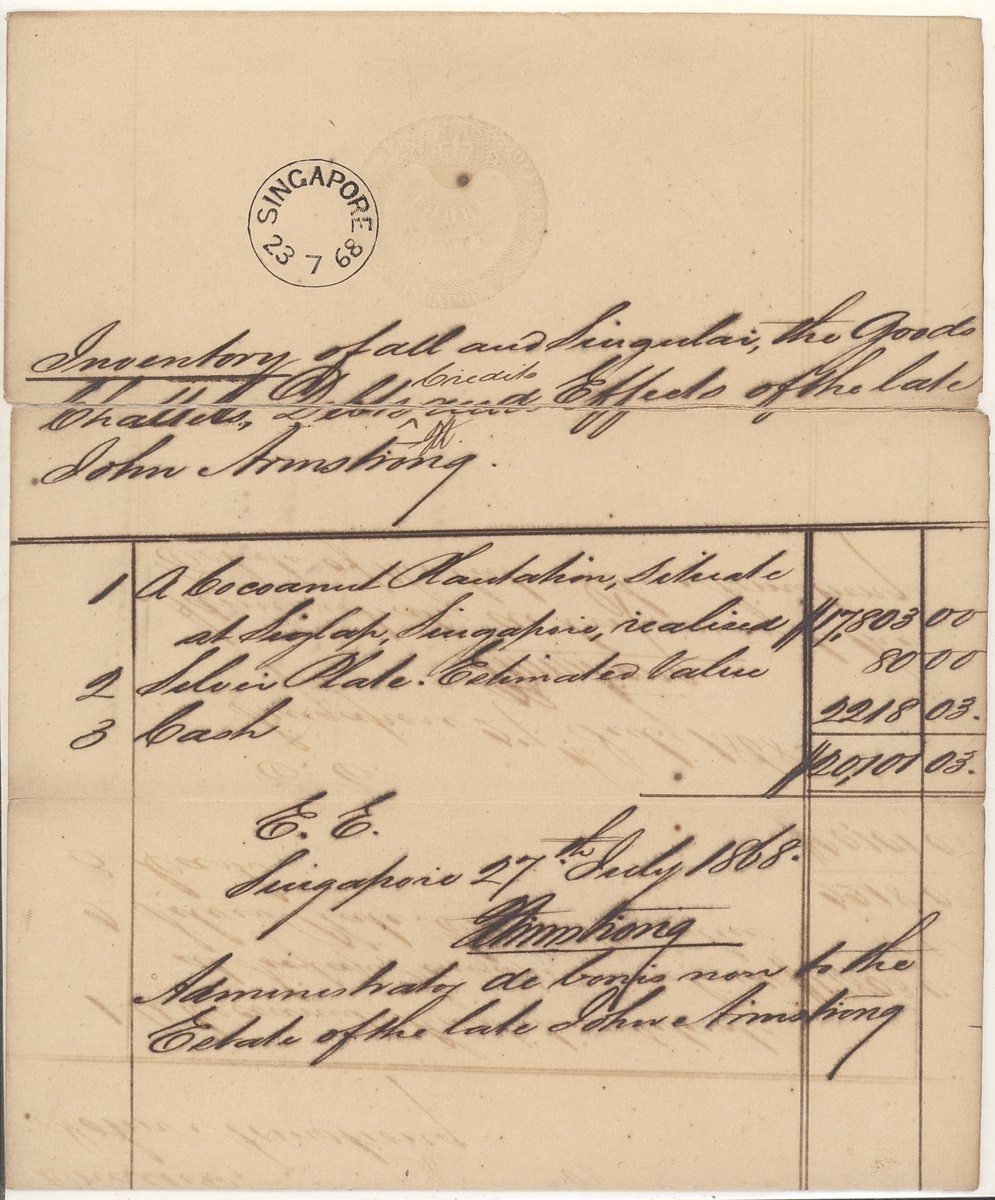 SINGAPORE
23 7 68
Inventory of all and Singular, the Goods
Credits
Chattels, Debts and Effects of the late
John Armstrong.
1 A Cocoanut Plantation, situate
at Siglap, Singapore, realised $17,803 00
2 Silver Plate. Estimated Value 80 00
3 Cash 2218 03.
$20,101 03.
E. E.
Singapore 27th July 1868.
Armstrong
Administrator de bonis non to the
Estate of the late John Armstrong